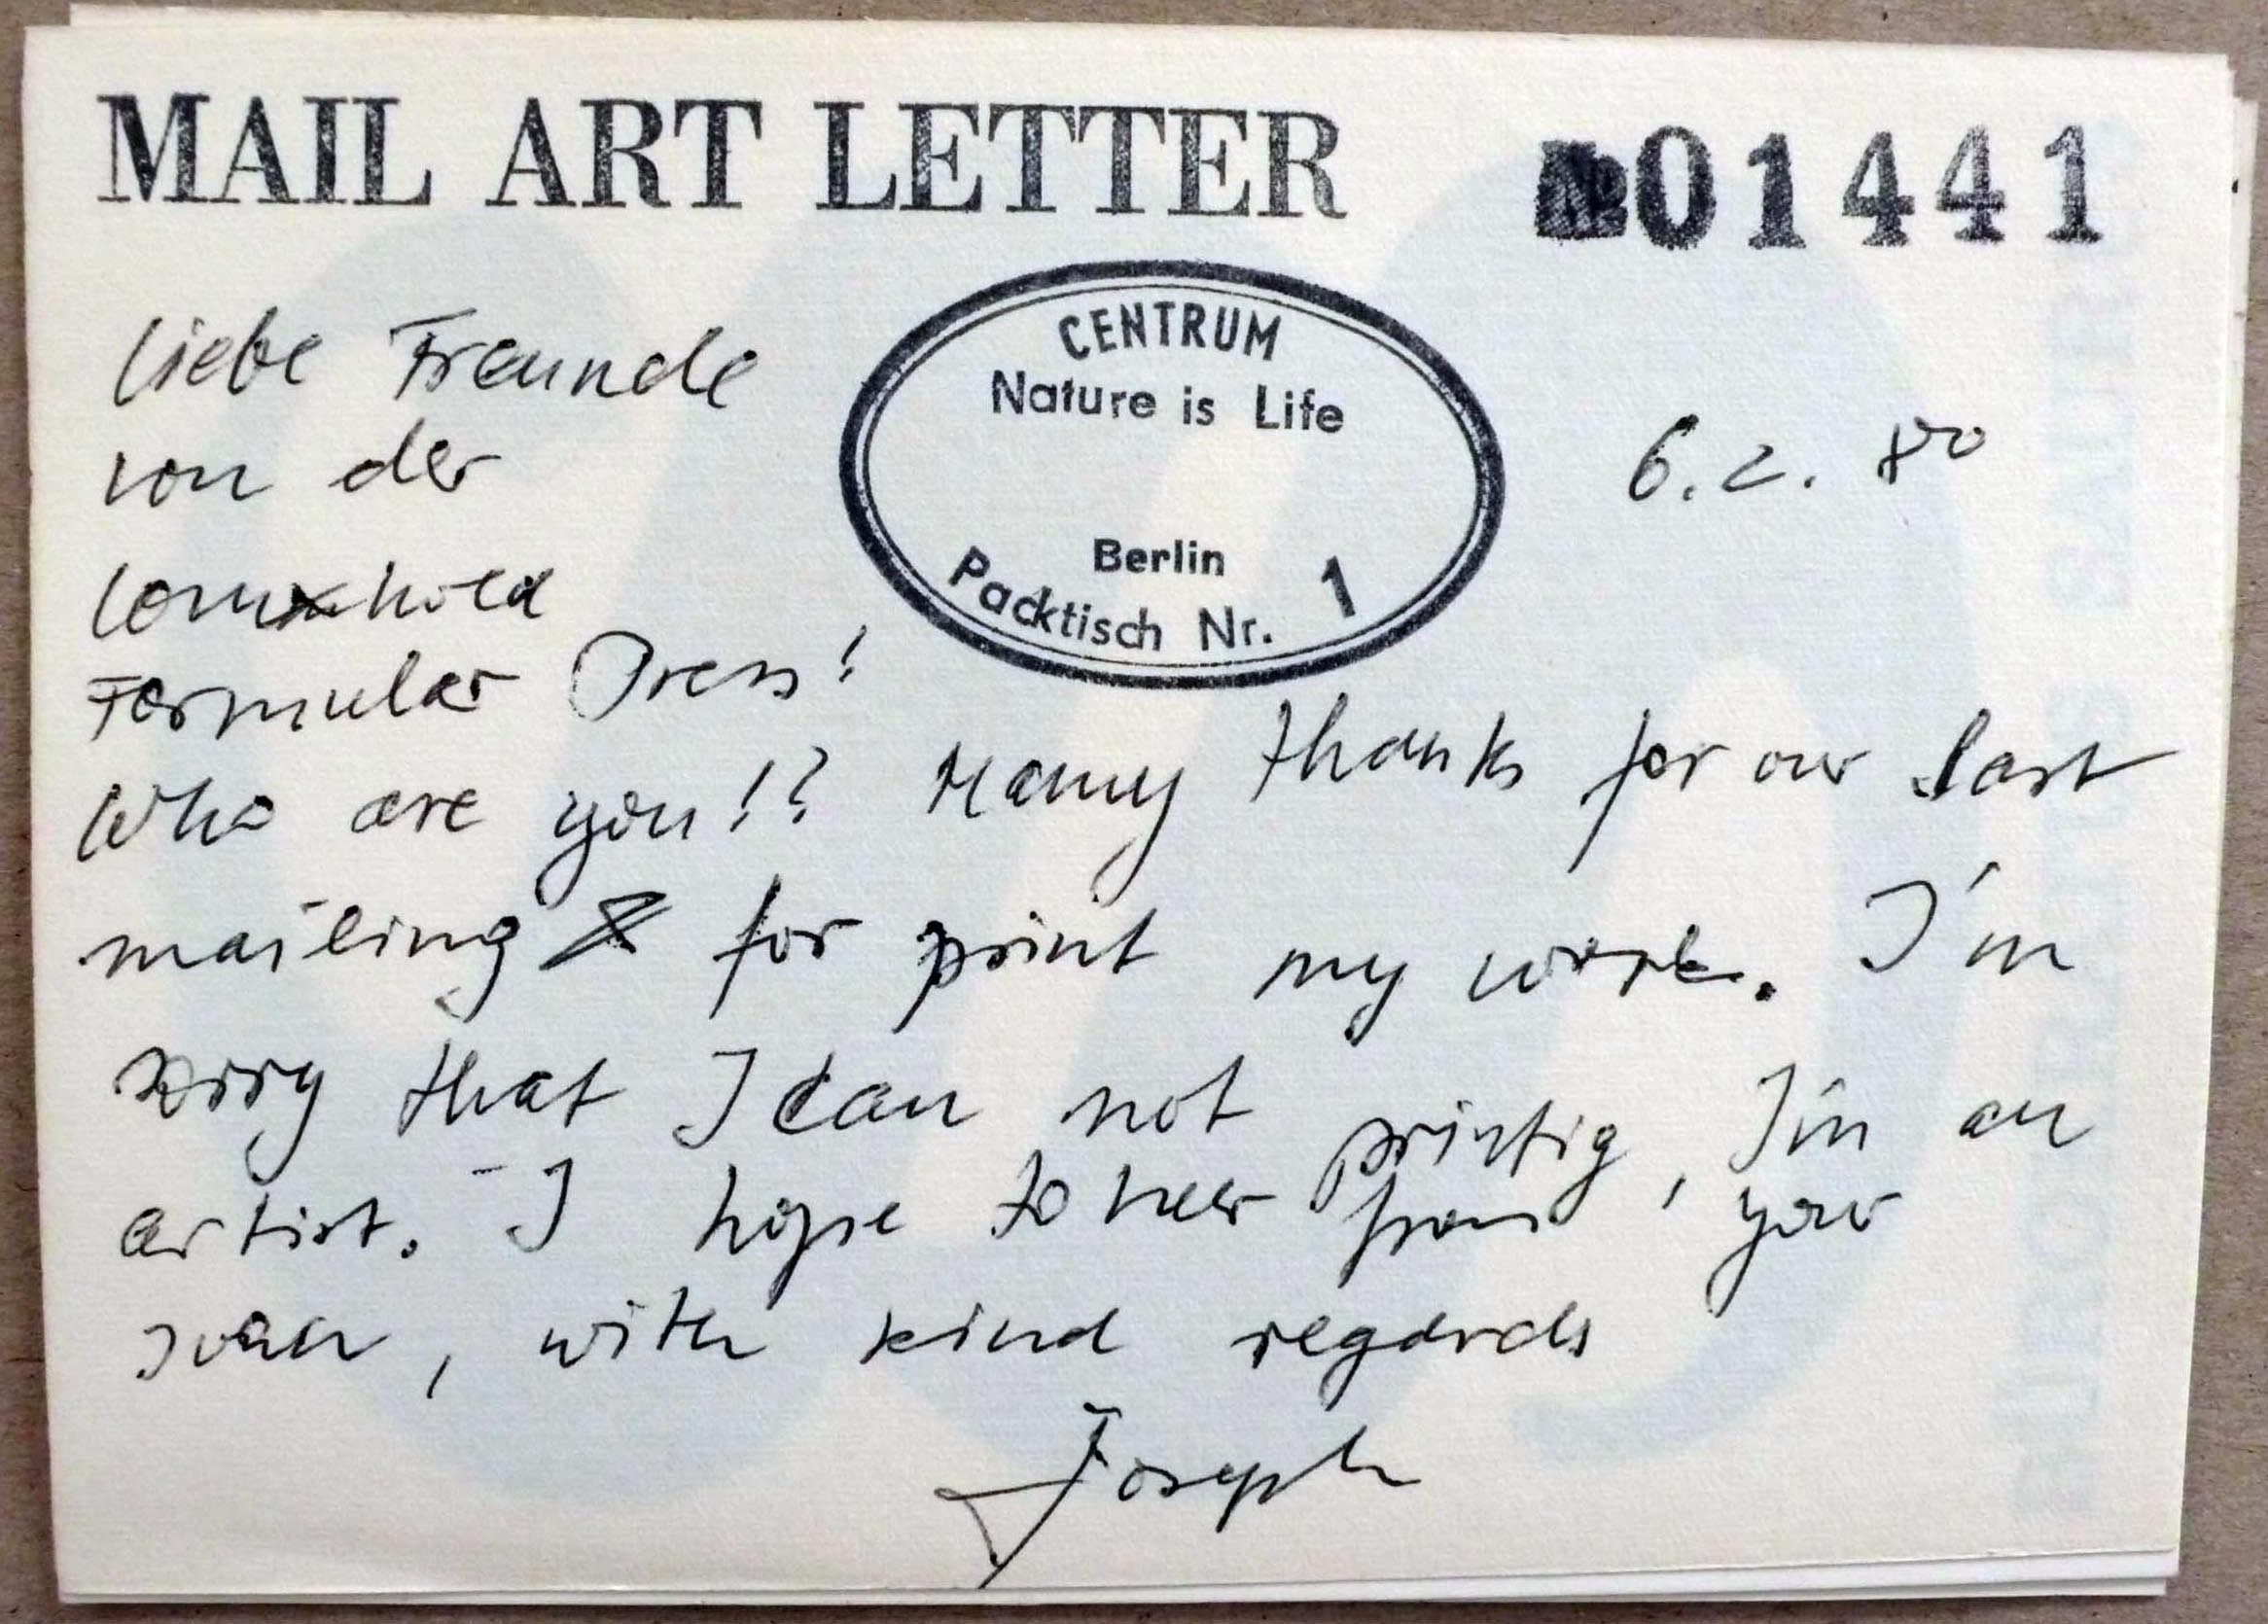 MAIL ART LETTER
№01441
CENTRUM
Nature is Life
Berlin
Packtisch Nr. 1
6.2.80
Liebe Freunde
von der
Formular Press!
Who are you!? Many thanks for our last
mailing & for print my work. I'm
sorry that I can not printig, I'm an
artist. I hope to heer from your
soon, with kind regards
Joseph